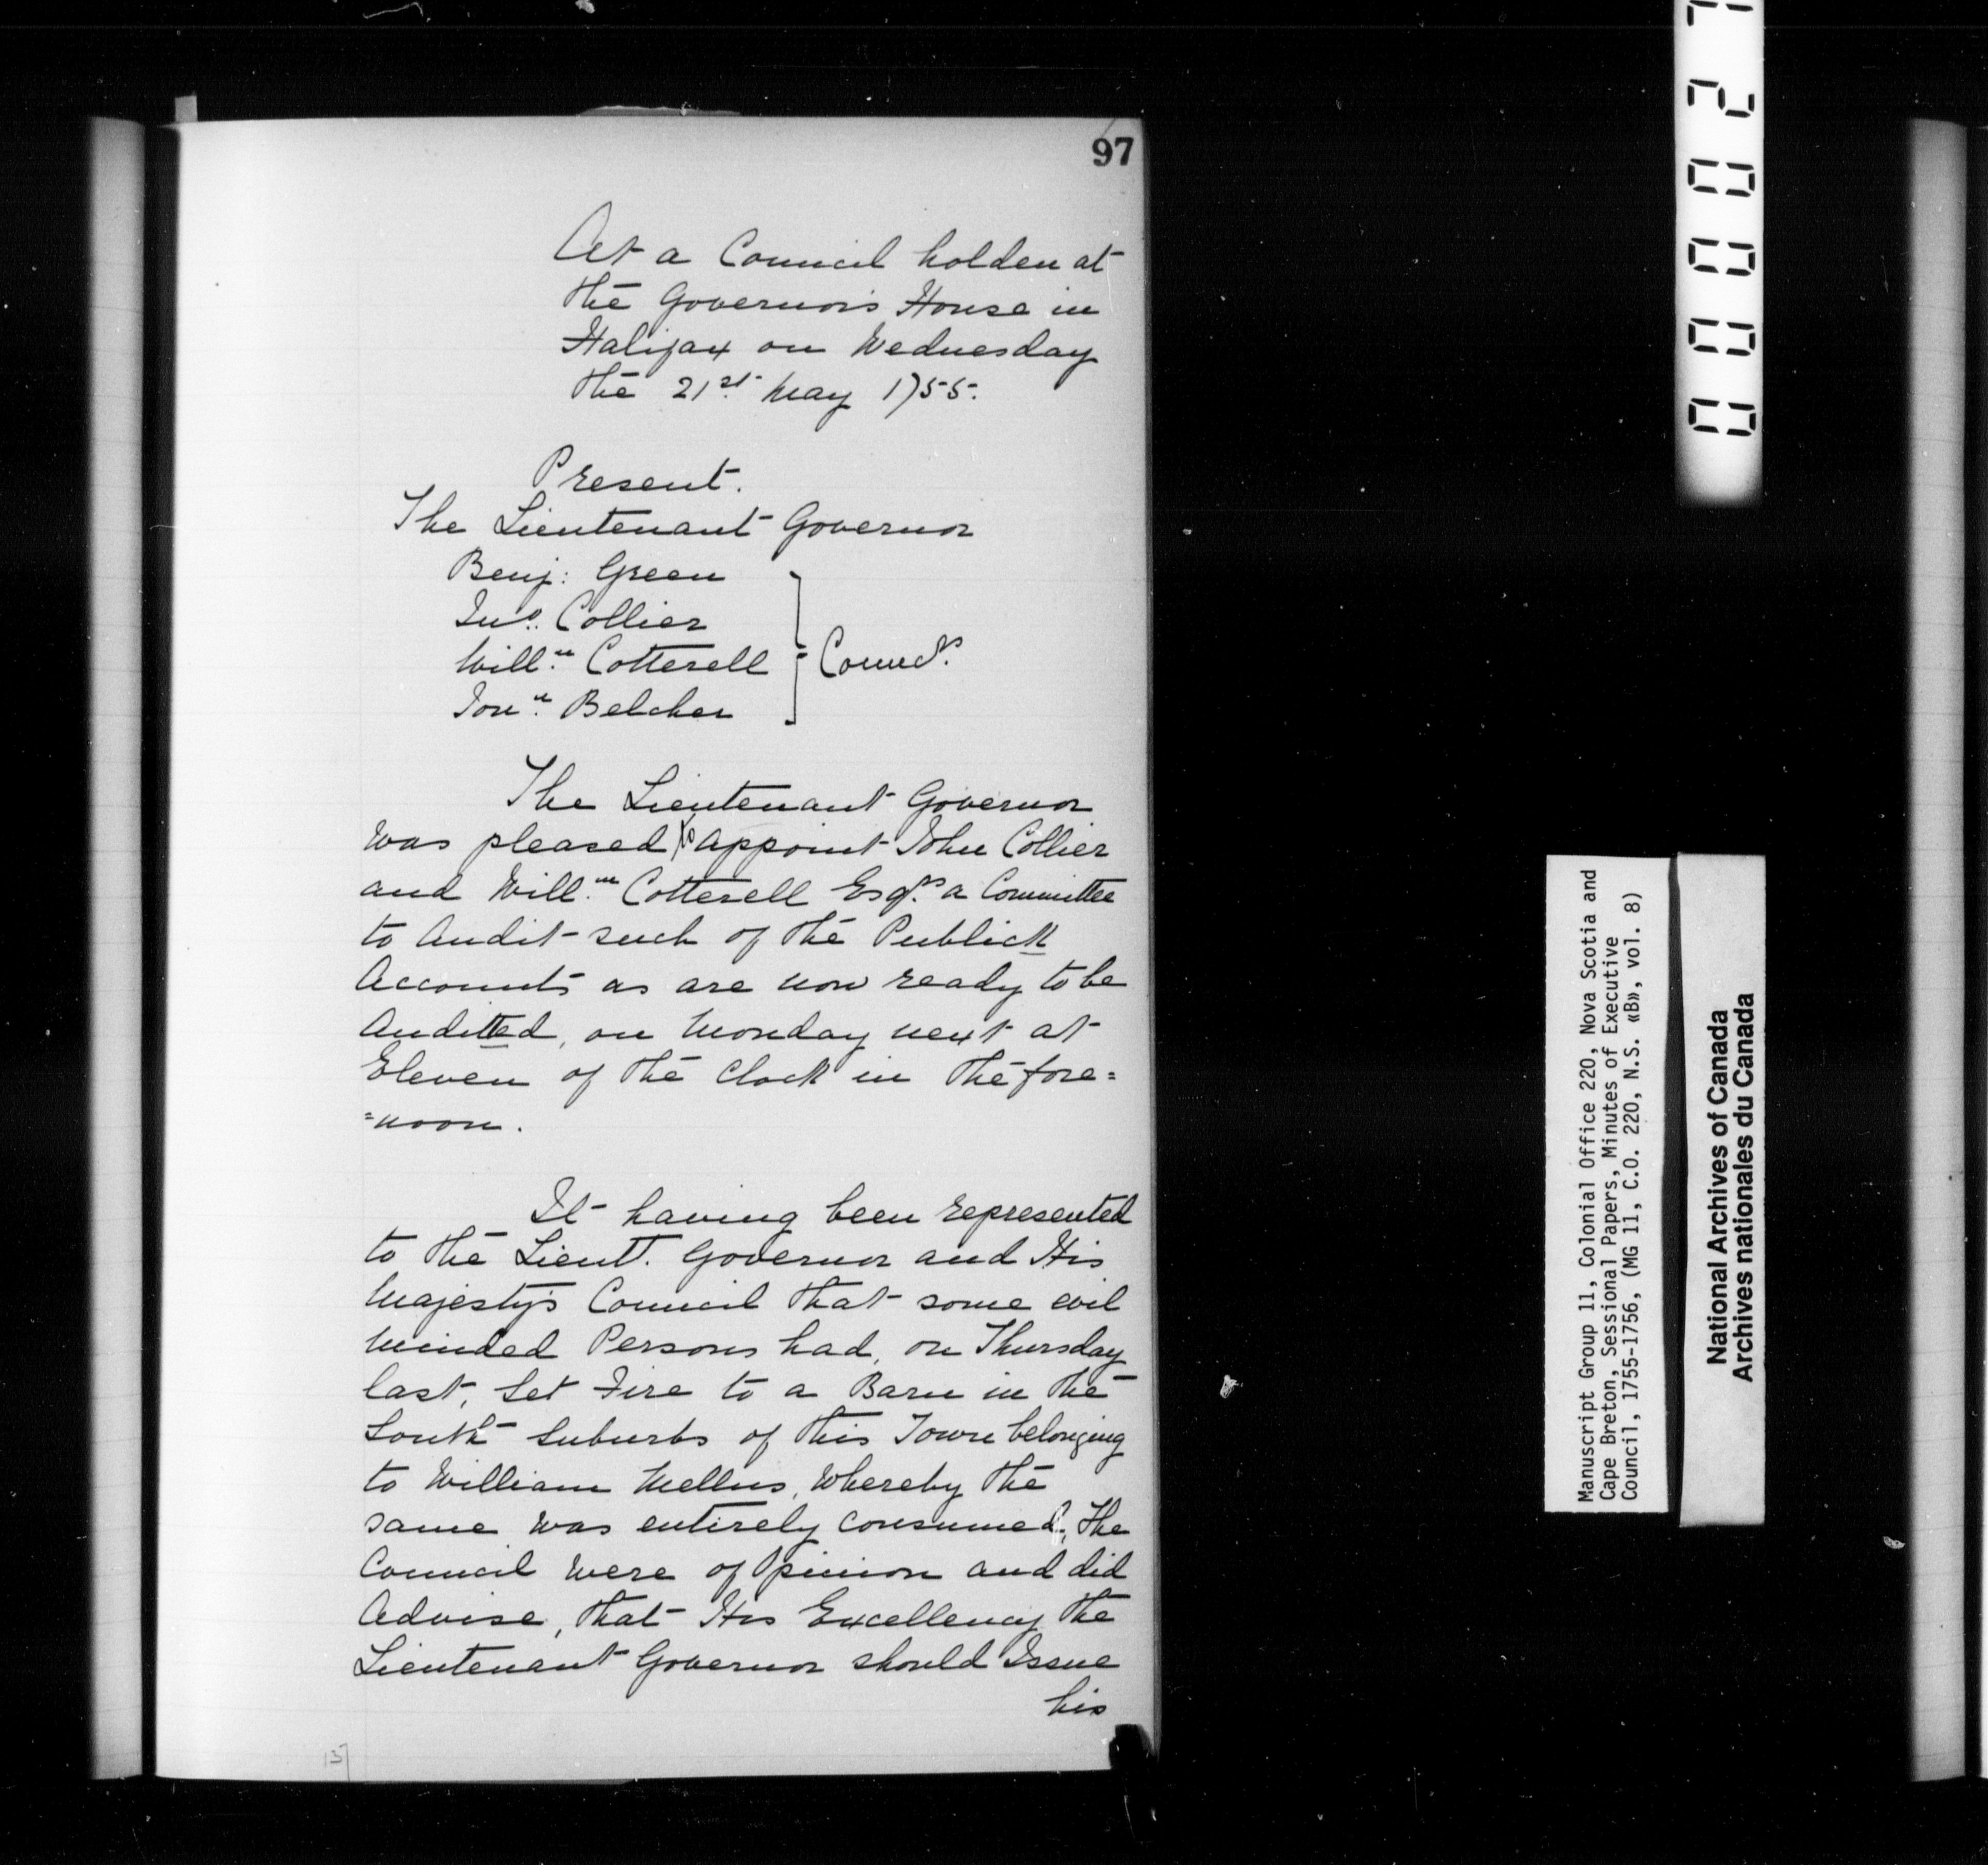 97
At a Council holden at
the Governor's House in
Halifax on Wednesday
the 21st May 1755.
Present.
The Lieutenant Governor
Benj: Green
Jno. Collier
Willm. Cotterell
Jonn. Belcher
Councrs.
The Lieutenant Governor
was pleased to appoint John Collier
and Willm. Cotterell Esqrs. a Committee
to Audit such of the Publick
Accounts as are now ready to be
Auditted, on Monday next at
Eleven of the Clock in the fore=
=noon.
It having been represented
to the Lieut. Governor and His
Majesty's Council that some evil
minded Persons had, on Thursday
last, Set Fire to a Barn in the
South Suburbs of this Town belonging
to William Mellus, Whereby the
same was entirely consumed, The
Council were of Opinion and did
Advise, that His Excellency the
Lieutenant Governor should Issue
his
137
0 0 0 0 2 7
Manuscript Group 11, Colonial Office 220, Nova Scotia and
Cape Breton, Sessional Papers, Minutes of Executive
Council, 1755-1756, (MG 11, C.O. 220, N.S. «B», vol. 8)
National Archives of Canada
Archives nationales du Canada